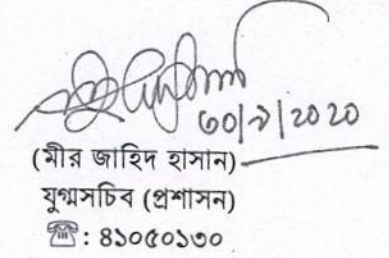 ৩০/৯/2020
(মীর জাহিদ হাসান)
যুগ্মসচিব (প্রশাসন)
☎: ৪১০৫০১৩০